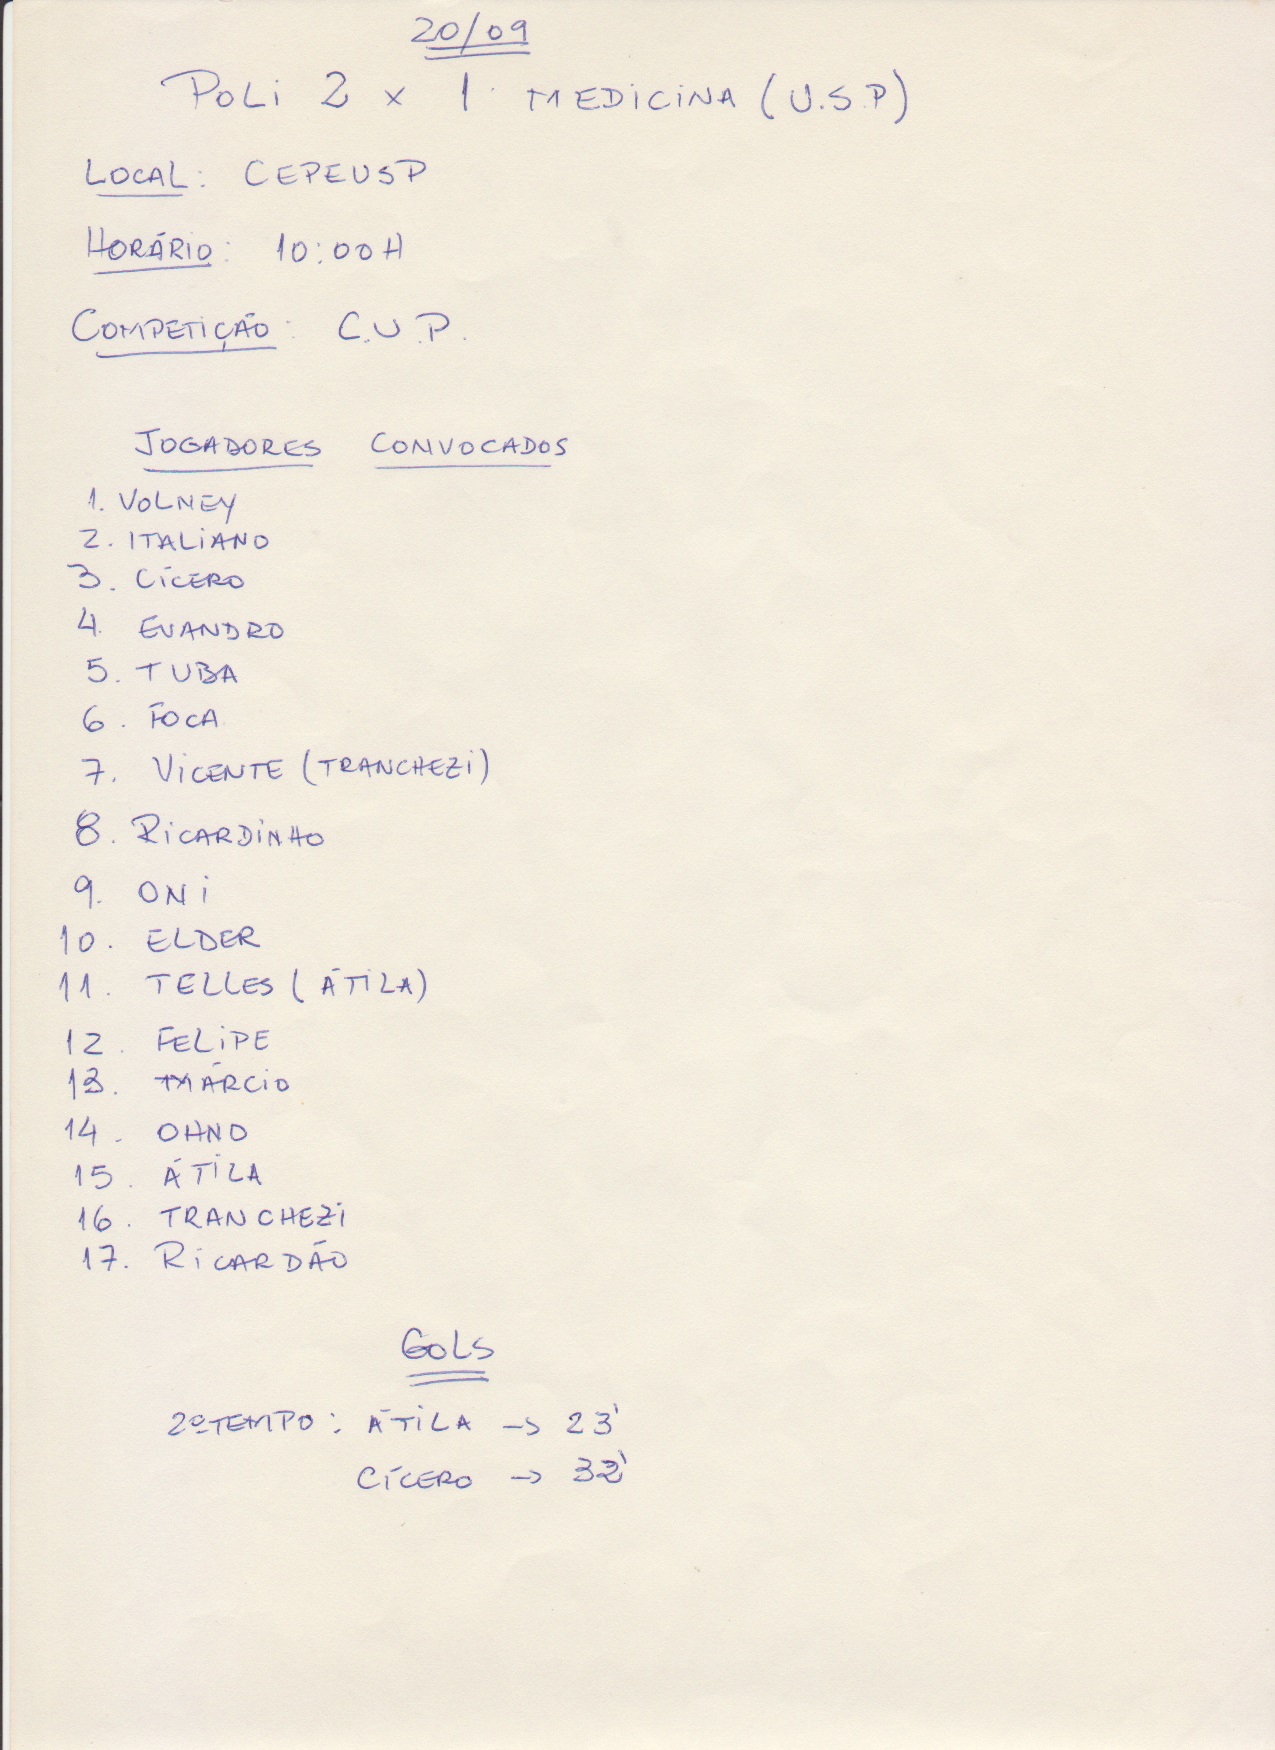 20/09
POLI 2 x 1 MEDICINA (U.S.P)
LOCAL: CEPEUSP
HORÁRIO: 10:00H
COMPETIÇÃO: C.U.P.
JOGADORES CONVOCADOS
1. VOLNEY
2. ITALIANO
3. CÍCERO
4. EVANDRO
5. TUBA
6. FOCA
7. VICENTE (TRANCHEZI)
8. RICARDINHO
9. ONI
10. ELDER
11. TELLES (ÁTILA)
12. FELIPE
13. MÁRCIO
14. OHNO
15. ÁTILA
16. TRANCHEZI
17. RICARDÃO
GOLS
2º TEMPO: ÁTILA -> 23'
CÍCERO -> 32'